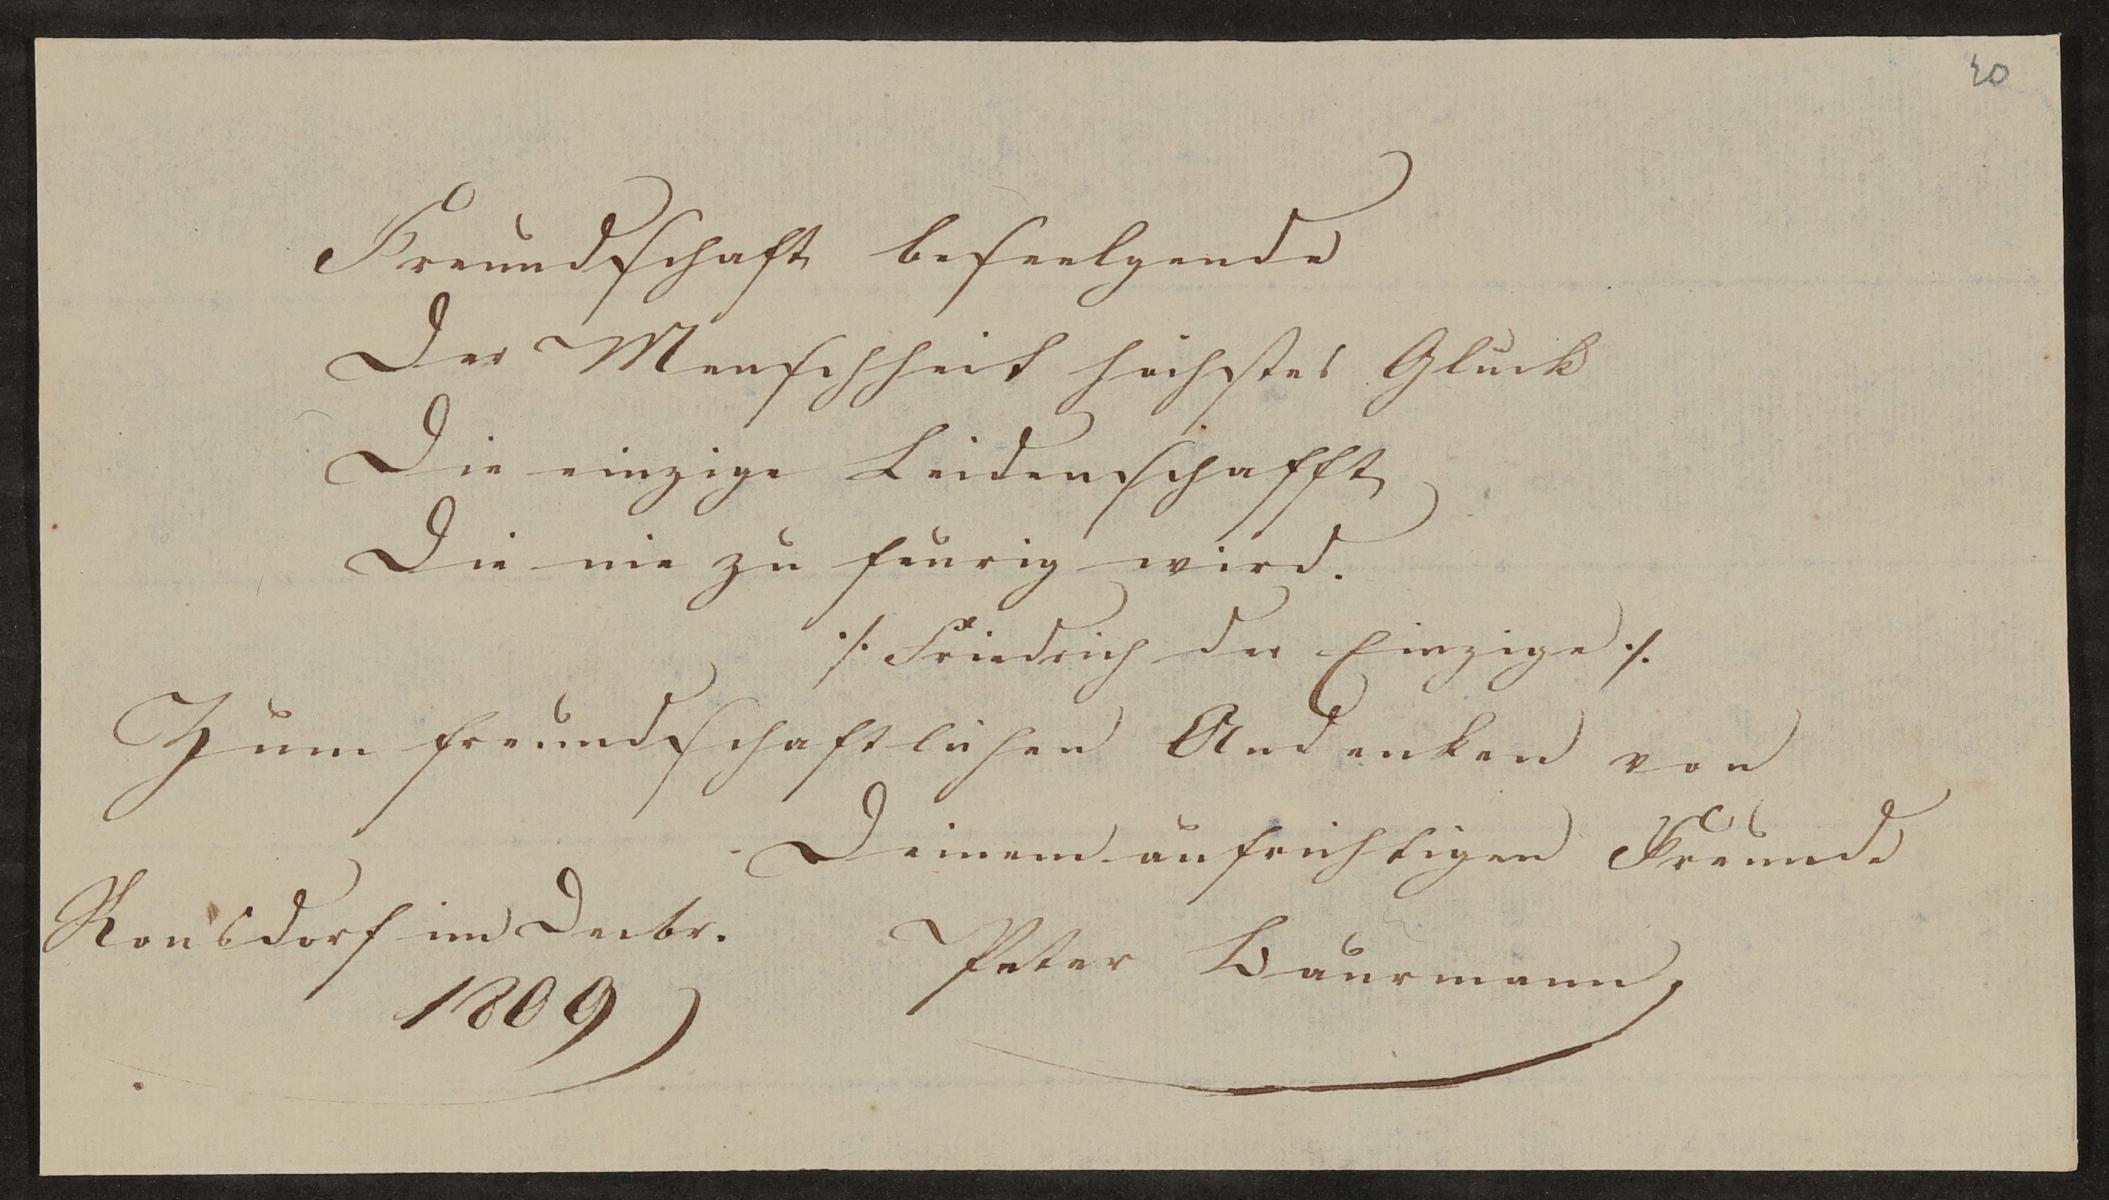 20
Freundschaft beseelgende
Der Menschheit höchstes Glück
Die einzige Leidenschafft
Die nie zu feurig wird.
./. Friedrich der Einzige ./.
Zum freundschaftlichen Andenken von
Deinem aufrichtigen Freunde
Ronsdorf im Decbr. Peter Baurmann
1809